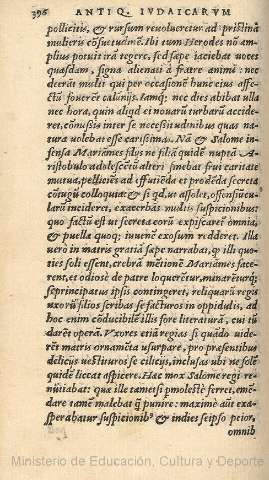 396 ANTIQ. IVDAICARVM
pollicitis, & rursum reuolueretur ad pristinā
mulieris cōsuetudinē. Ibi tum Herodes nō am-
plius potuit irā tegere, sed sæpe iaciebat uoces
quasdam, signa alienati à fratre animi: nec
deerāt multi qui per occasionē hunc eius affe-
ctū fouerēt calūnijs. Iamq; nec dies abibat ulla
nec hora, quin aliqd ei nouarū turbarū accide-
ret, cōmissis inter se necessitudinibus quas na-
tura uolebat esse carissimas. Nā & Salome in-
fensa Mariamēs filijs ne filiā quidē nuptā Ari-
stobulo adolescēti alteri sinebat frui caritate
mutua, pelliciēs ad effutiēda et prodēda secreta
cōiugū colloquia: & si qd, ut assolet, offensiuncu-
larū incideret, exacerbās multis suspicionibus:
quo factū est ut secreta eorū expiscaret omnia,
& puella quoq; iuuenē exosum redderet. Illa
uero in matris gratiā sæpe narrabat, q̃ illi quo-
ties soli essent, crebrā mētionē Mariames face-
rent, et odiosè de patre loquerētur, minarēturq;
se principatus ipsis contingeret, reliquarū regis
uxorū filios scribas se facturos in oppidulis, ad
hoc enim cōducibilē illis fore literaturā, cui tū
darēt operā. Vxores etiā regias si quādo uide-
rēt matris ornamēta usurpare, pro præsentibus
delicijs uestituros se cilicijs, inclusas ubi ne solē
quidē liceat aspicere. Hæc mox Salome regi re-
nūtiabat: quæ ille tametsi p molestè ferret, emē-
dare tamē malebat q̃ punire: maximè aūt exa-
sperabatur suspicionibꝰ & indies seipso peior,
omnib
Ministerio de Educación, Cultura y Deporte